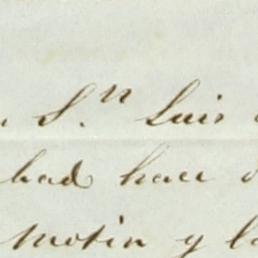 S.n Luis
had hace
motin y la